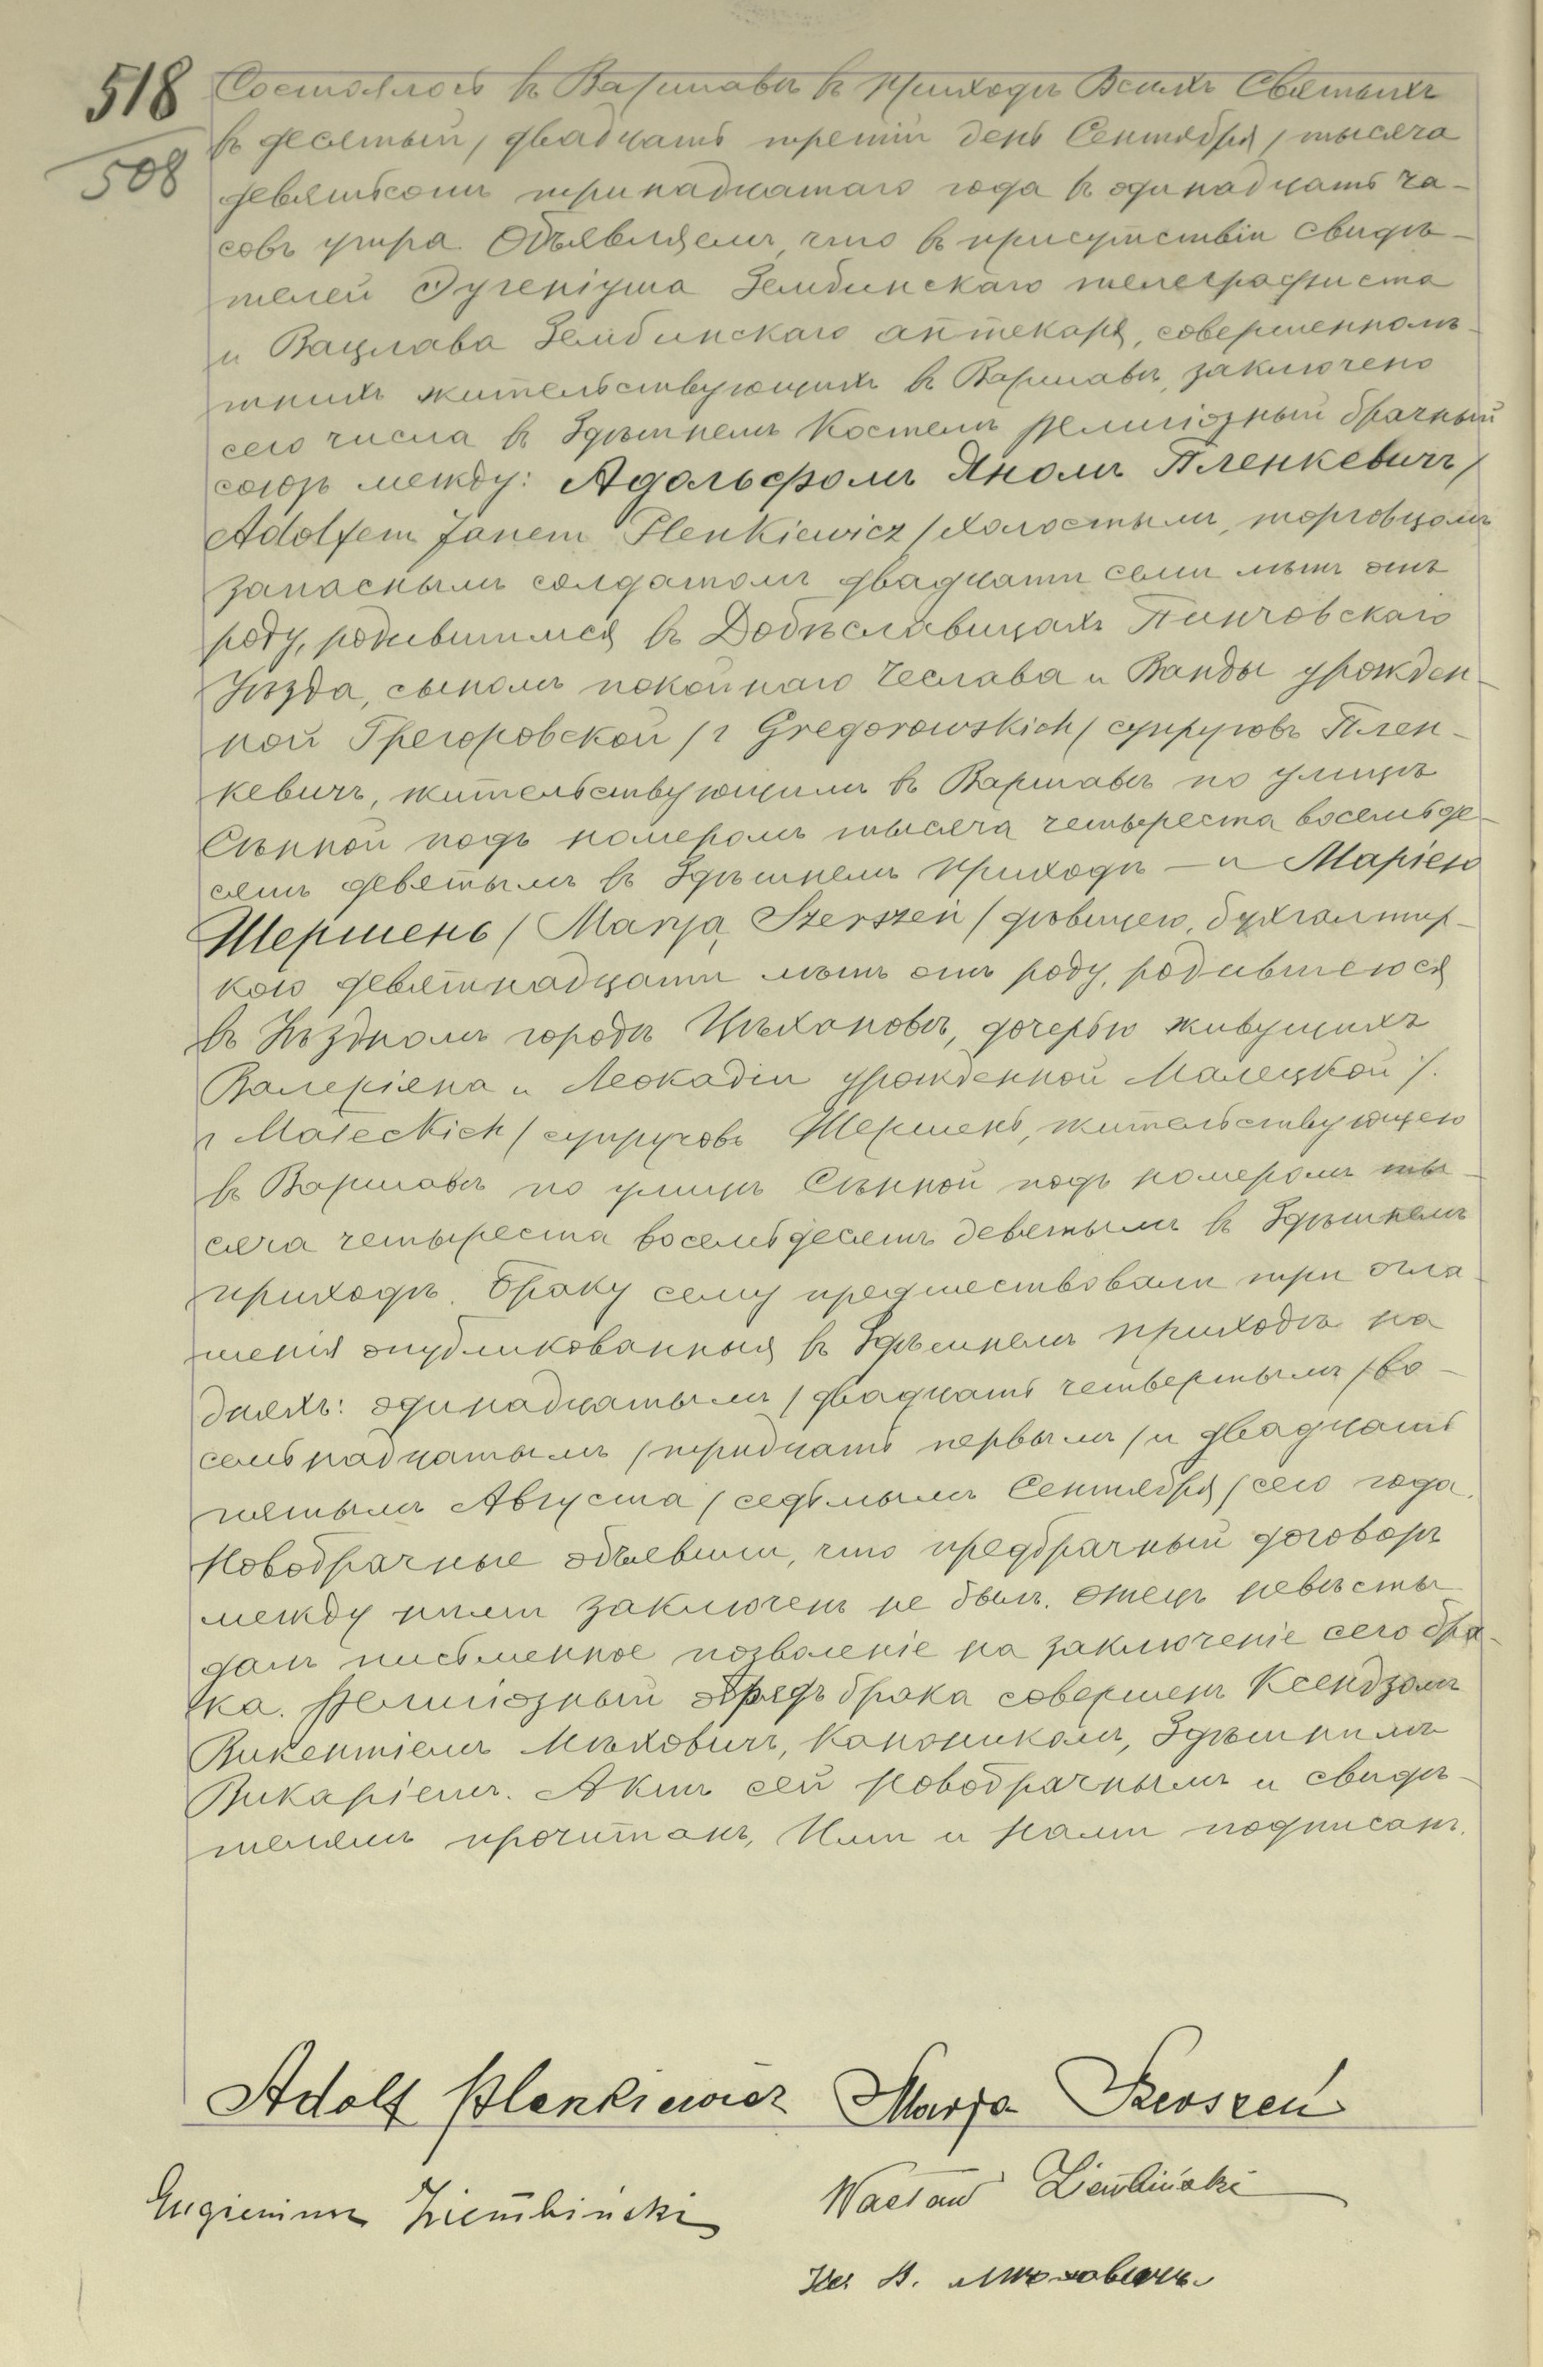 518
508
Состоялось въ Варшавѣ въ приходѣ Всѣхъ Святыхъ
въ десятый / двадцать третій день Сентября / тысяча
девятьсотъ тринадцатаго года въ одинадцать ча-
совъ утра. Объявляемъ, что въ присутствіи свидѣ-
телей Эугеніуша Зембинскаго телеграфиста
и Вацлава Зембинскаго аптекаря, совершеннолѣ-
тнихъ жительствующихъ въ Варшавѣ, заключено
сего числа въ Здѣшнемъ Костелѣ религіозный брачный
союзъ между: Адольфомъ Яномъ Пленкевичъ /
Adolfem Janem Plenkiewicz / холостымъ, торговцомъ
запаснымъ солдатомъ двадцати семи лѣтъ отъ
роду, родившимся въ Добѣславицахъ Пинчовскаго
Уѣзда, сыномъ покойнаго Чеслава и Ванды урожден-
ной Грегоровской / z Gregorowskich / супруговъ Плен-
кевичъ, жительствующимъ въ Варшавѣ по улицѣ
Сѣнной подъ номеромъ тысяча четыреста восемьде-
сятъ девятымъ въ Здѣшнемъ приходѣ — и Маріею
Шершень / Marją Szerszeń / дѣвицею, бухгалтер-
кою девятнадцати лѣтъ отъ роду, родившеюся
въ Уѣздномъ городѣ Цѣхановѣ, дочерью живущихъ
Валеріяна и Леокадіи урожденной Малецкой /.
z Małeckich / супруговъ Шершень, жительствующею
въ Варшавѣ по улицѣ Сѣнной подъ номеромъ ты-
сяча четыреста восемьдесятъ девятымъ въ Здѣшнемъ
приходѣ. Браку сему предшествовали три огла-
шенія опубликованныя въ Здѣшнемъ приходѣ на
дняхъ: одинадцатымъ / двадцать четвертымъ / во-
семьнадцатымъ / тридцать первымъ / и двадцать
пятымъ Августа / седьмымъ Сентября / сего года.
Новобрачные объявили, что предбрачный договоръ
между ними заключенъ не былъ. Отецъ невѣсты
далъ письменное позволеніе на заключеніе сего бра-
ка. Религіозный обрядъ брака совершенъ Ксендзомъ
Викентіемъ Мѣховичъ, Каноникомъ, Здѣшнимъ
Викаріемъ. Актъ сей Новобрачнымъ и свидѣ-
телямъ прочитанъ, Ими и Нами подписанъ.
Adolf Plenkiewicz Marja Szerszeń
Eugieniusz Ziembiński Wacław Ziembiński
Кс. В. Мѣховичъ